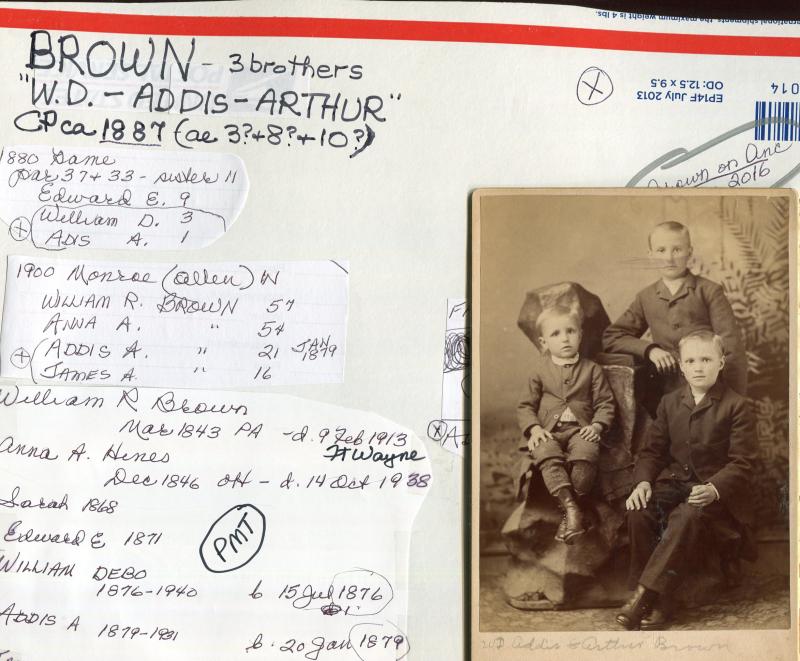 international shipments, the maximum weight is 4 lbs.
BROWN - 3 brothers
"W.D. - ADDIS - ARTHUR"
CP ca 1887 (ae 3? + 8? + 10?)
EP14F July 2013
OD: 12.5 x 9.5
014
X
1880 Same
par 37 + 33 - sister 11
Edward E. 9
William D. 3
X ADIS A. 1
Brown on Anc
2016
1900 Monroe (Allen) IN
WILLIAM R. BROWN 57
ANNA A. " 54
ADDIS A. " 21 JAN 1879
X JAMES A. " 16
William R Brown
Mar 1843 PA - d. 9 Feb 1913
Ft Wayne
Anna A. Hines
Dec 1846 OH - d. 14 Oct 1938
Sarah 1868
Edward E 1871
PMT
WILLIAM DEBO
1876-1940 b 15 Jul 1876
ADDIS A 1879-1981
b. 20 Jan 1879
X
WD Addis & Arthur Brown